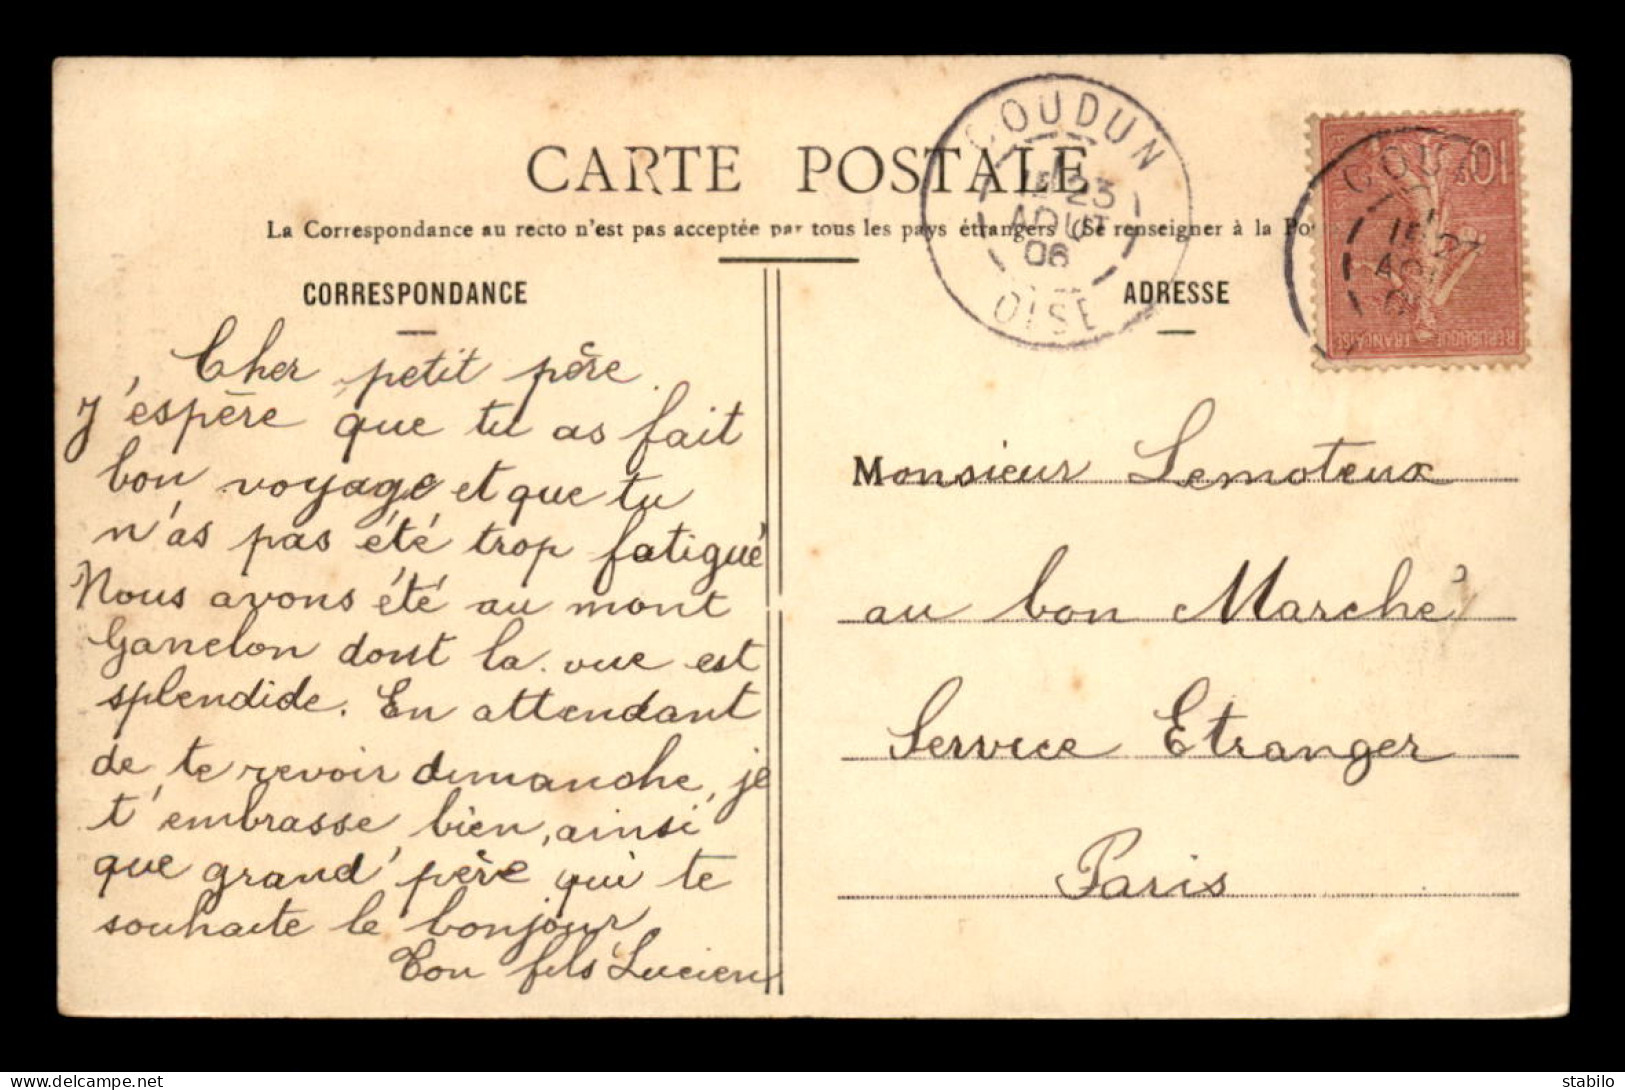 CARTE POSTALE
La Correspondance au recto n'est pas acceptée par tous les pays étrangers (Se renseigner à la
CORRESPONDANCE
Cher petit père
J'espère que tu as fait
bon voyage et que tu
n'as pas été trop fatigué
Nous avons été au mont
Ganelon dont la vue est
splendide. En attendant
de te revoir dimanche, je
t'embrasse bien, ainsi
que grand'père qui te
souhaite le bonjour
Ton fils Lucien
COUDUN
23
AOUT
06
OISE
10
REPUBLIQUE FRANÇAISE
ADRESSE
Monsieur Lemoteux
au bon Marché
Service Etranger
Paris
stabilo